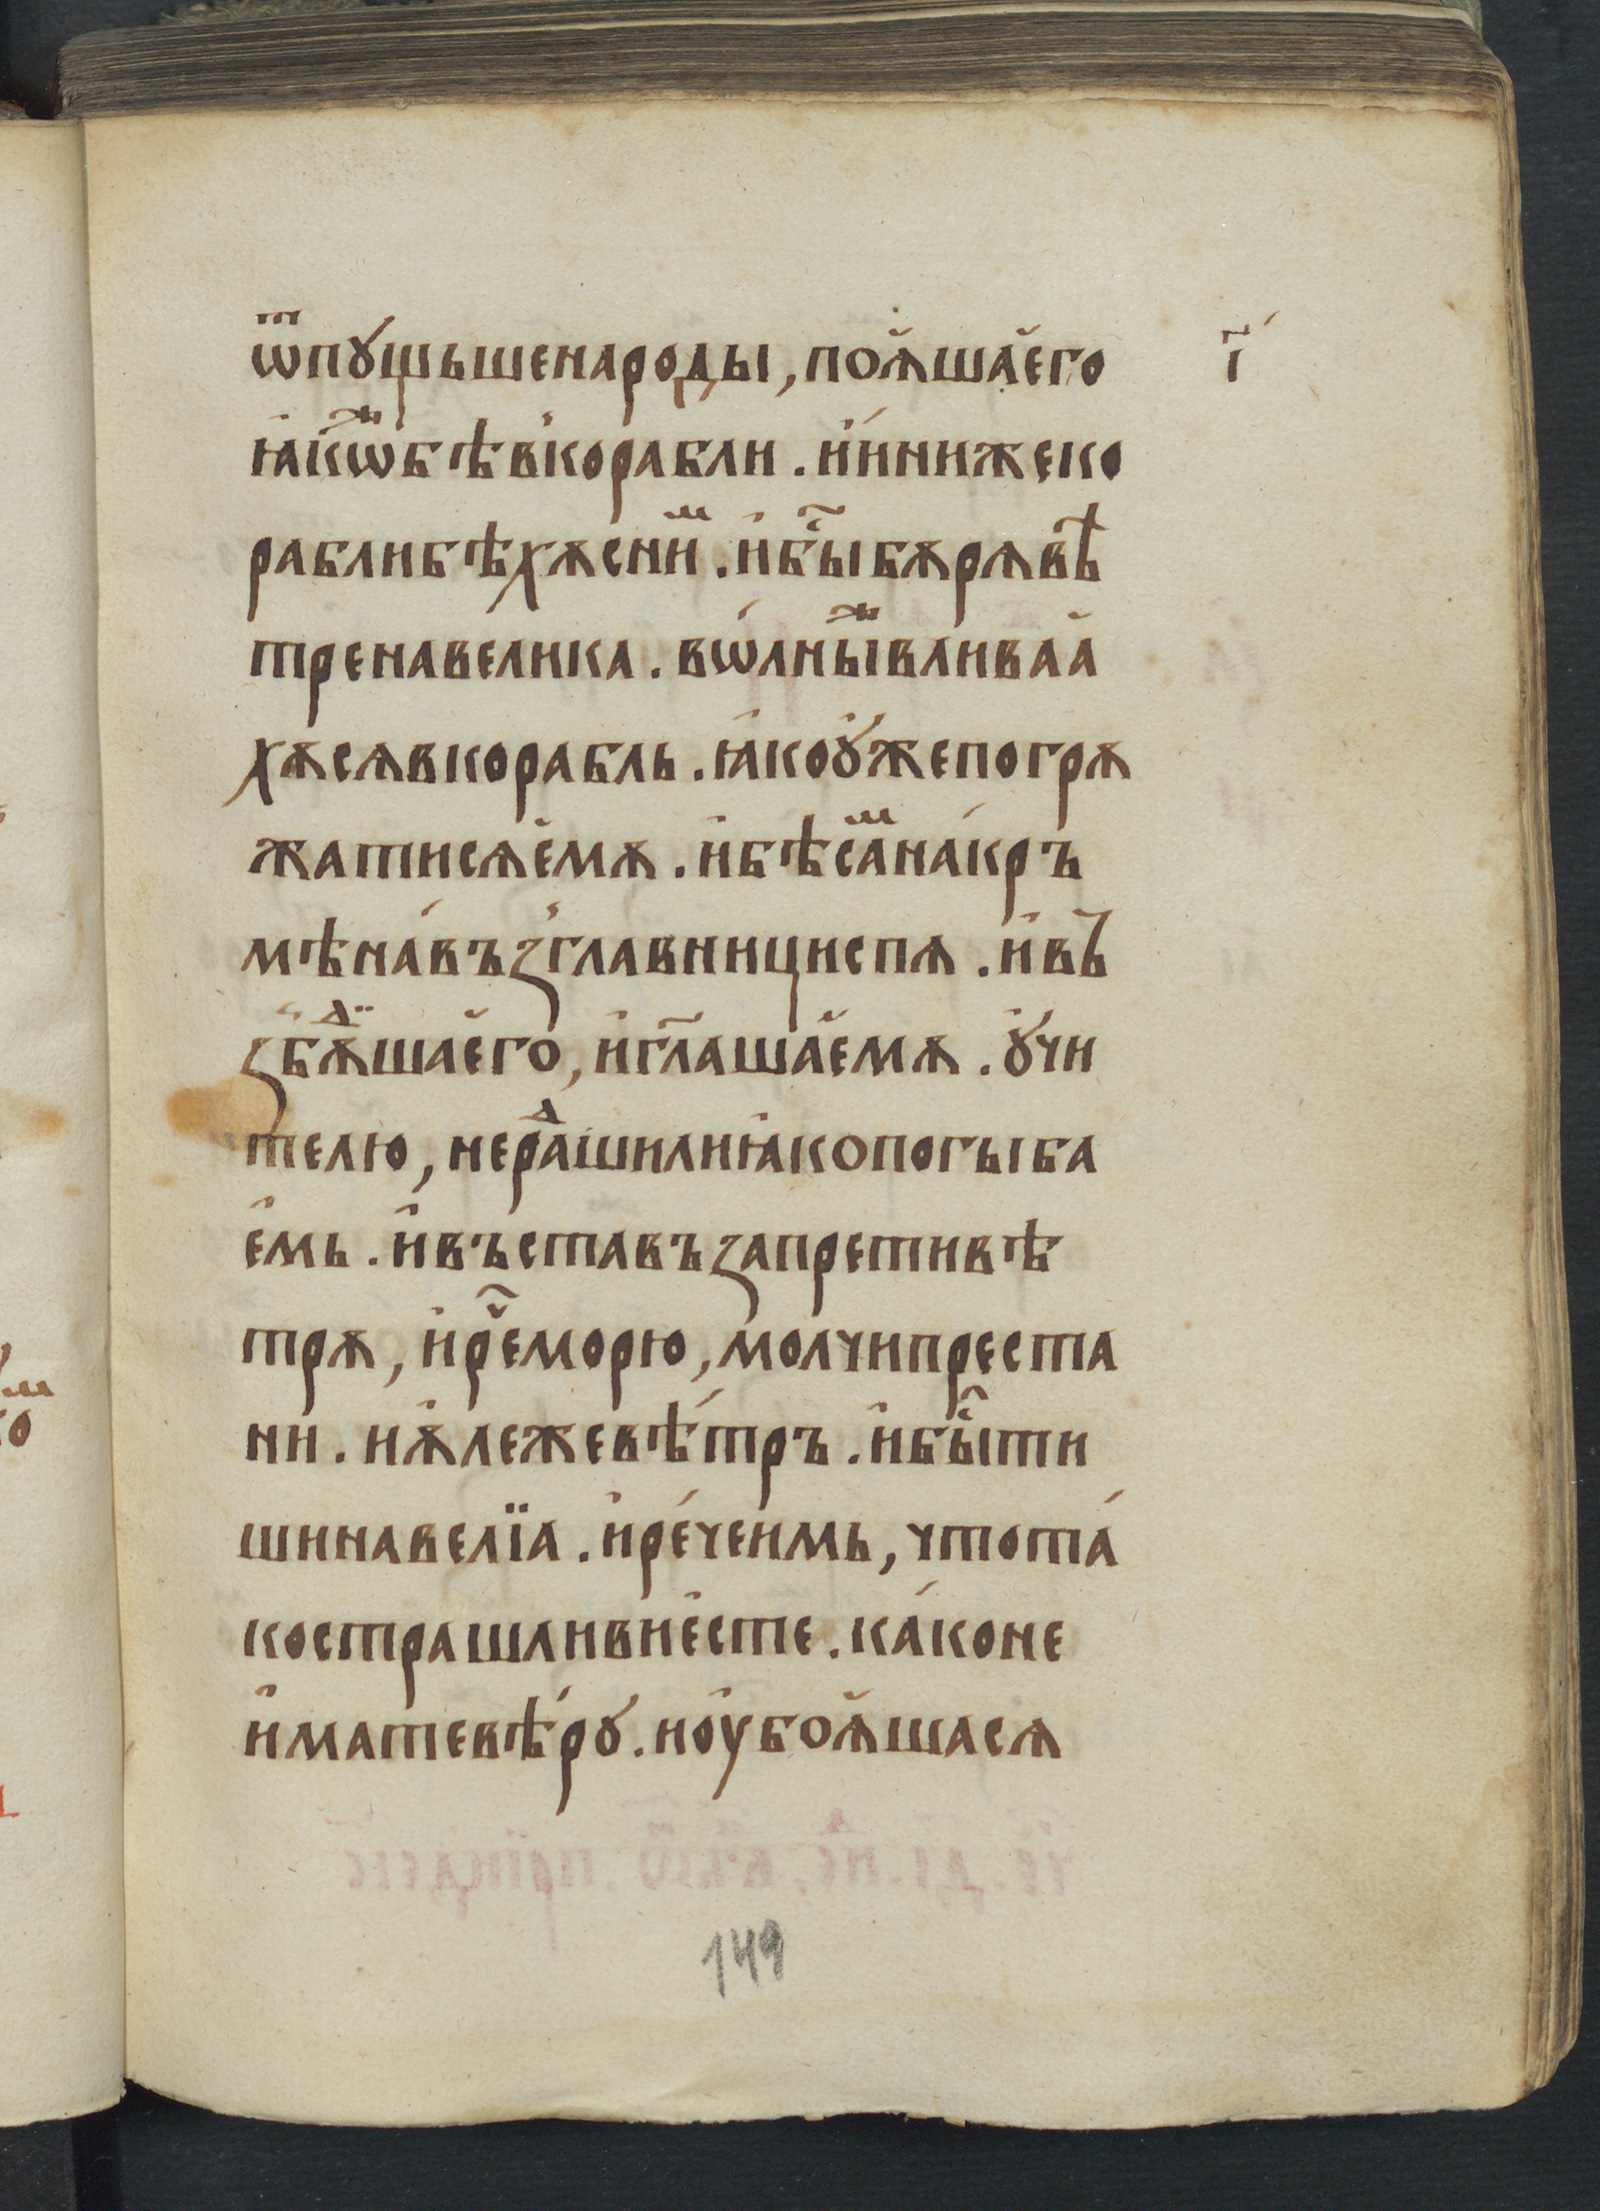 ѿпꙋщьшенароды, поѧ̆шаĕго ї҃
ꙗ҆кѡ҆жбѣв҆корабли . и҆и́нижеко
раблибѣхѫсни́м . и҆бы̑бѫрѧвѣ
тренавелика . вѡ́лны́жвливаӑ
хѫсѧвкорабль . ꙗ҆коꙋ҆жепогрѫ
жатисѧе҆мѫ . и҆бѣса́мна́кръ
мѣна́въꙁглавницисп​ѧ . и҆въ
ꙁбꙋ́дѧшаĕго, и҆гл҃ашаĕмѫ . ꙋ҆чи
телю, нера́дишилиꙗ҆копогыба
е҆мь . и҆въставъꙁапретивѣ
трѫ, и҆ре҃морю, молчипреста
ни . иѧ҆лежевѣ́тръ . и҆бы̑ти
шинавелїа . и҆ре́чеи҆мь, чтота́
кострашливие҆сте . ка́коне
и҆матевѣ́рꙋ . ноу҆боѧ̆шасѧ
149